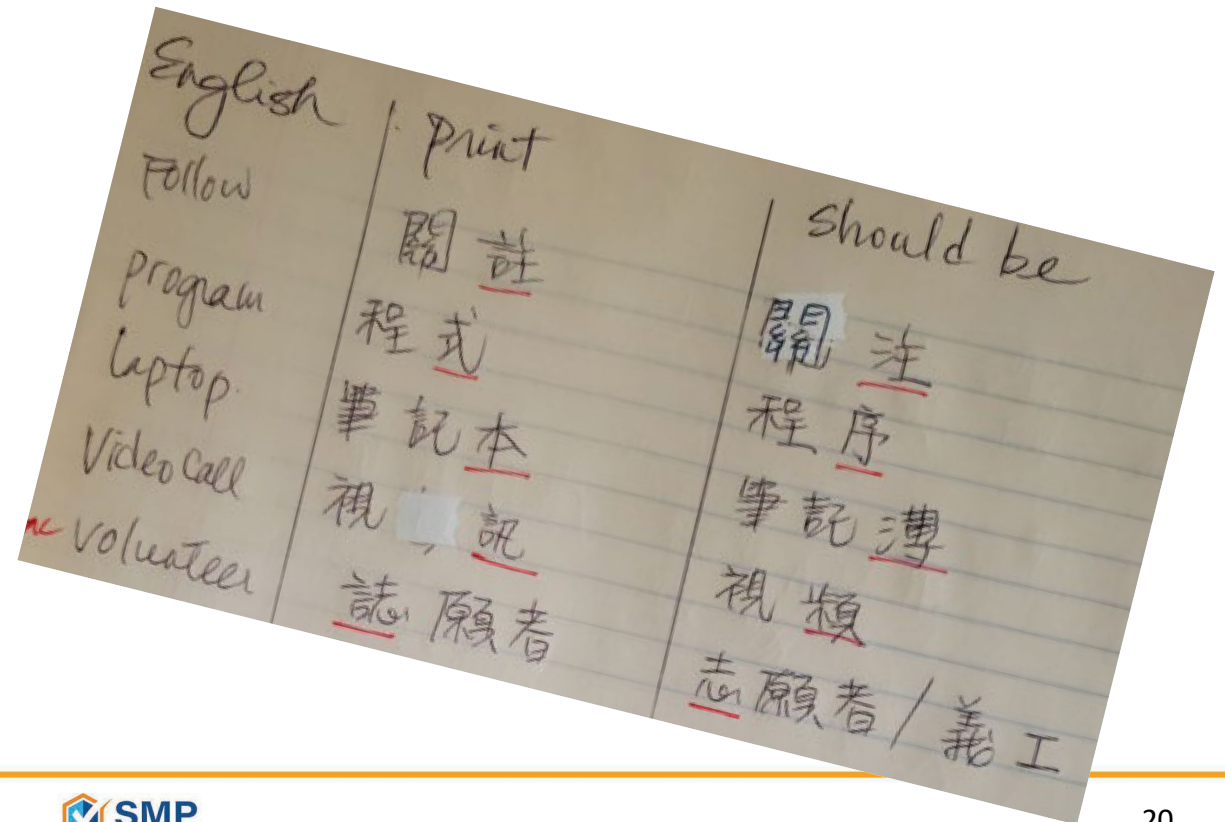 English | Print | Should be
Follow | 關 註 | 關 注
program | 程 式 | 程 序
Laptop. | 筆 記 本 | 筆 記 簿
Video Call | 視 訊 | 視 頻
volunteer | 誌 願 者 | 志 願 者 / 義 工
SMP
20